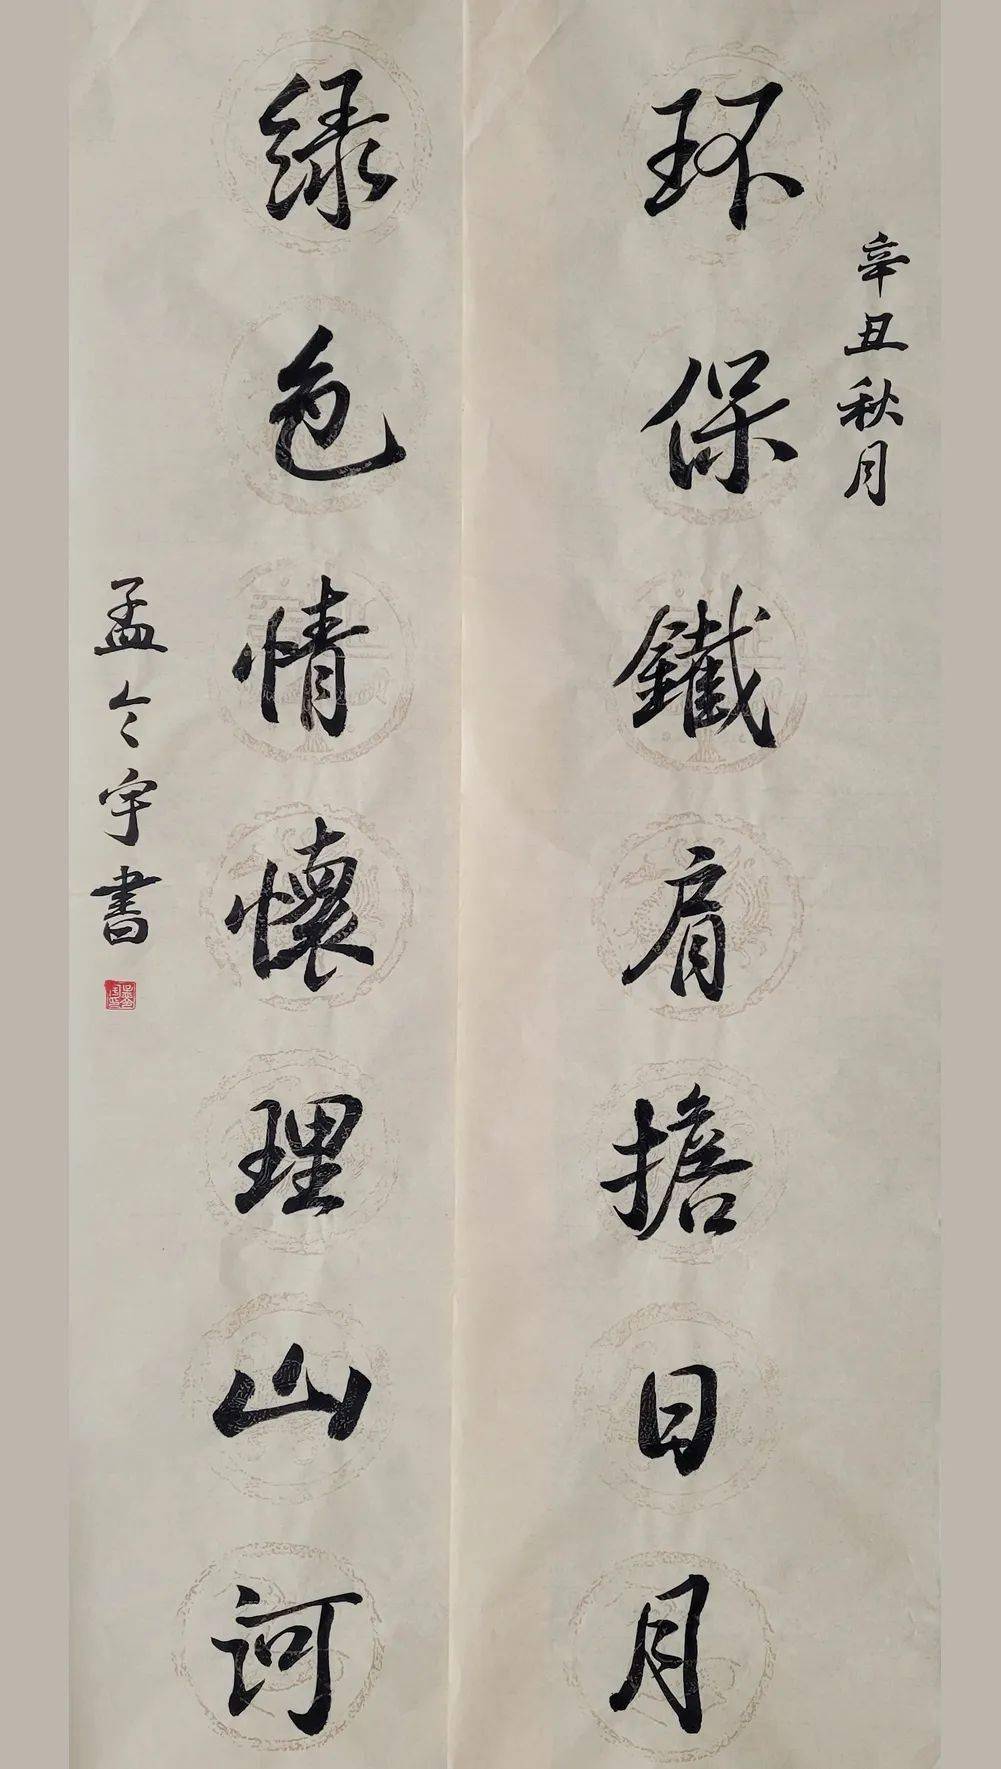 辛丑秋月
环保鐵肩擔日月
绿色情懷理山河
孟令宇書